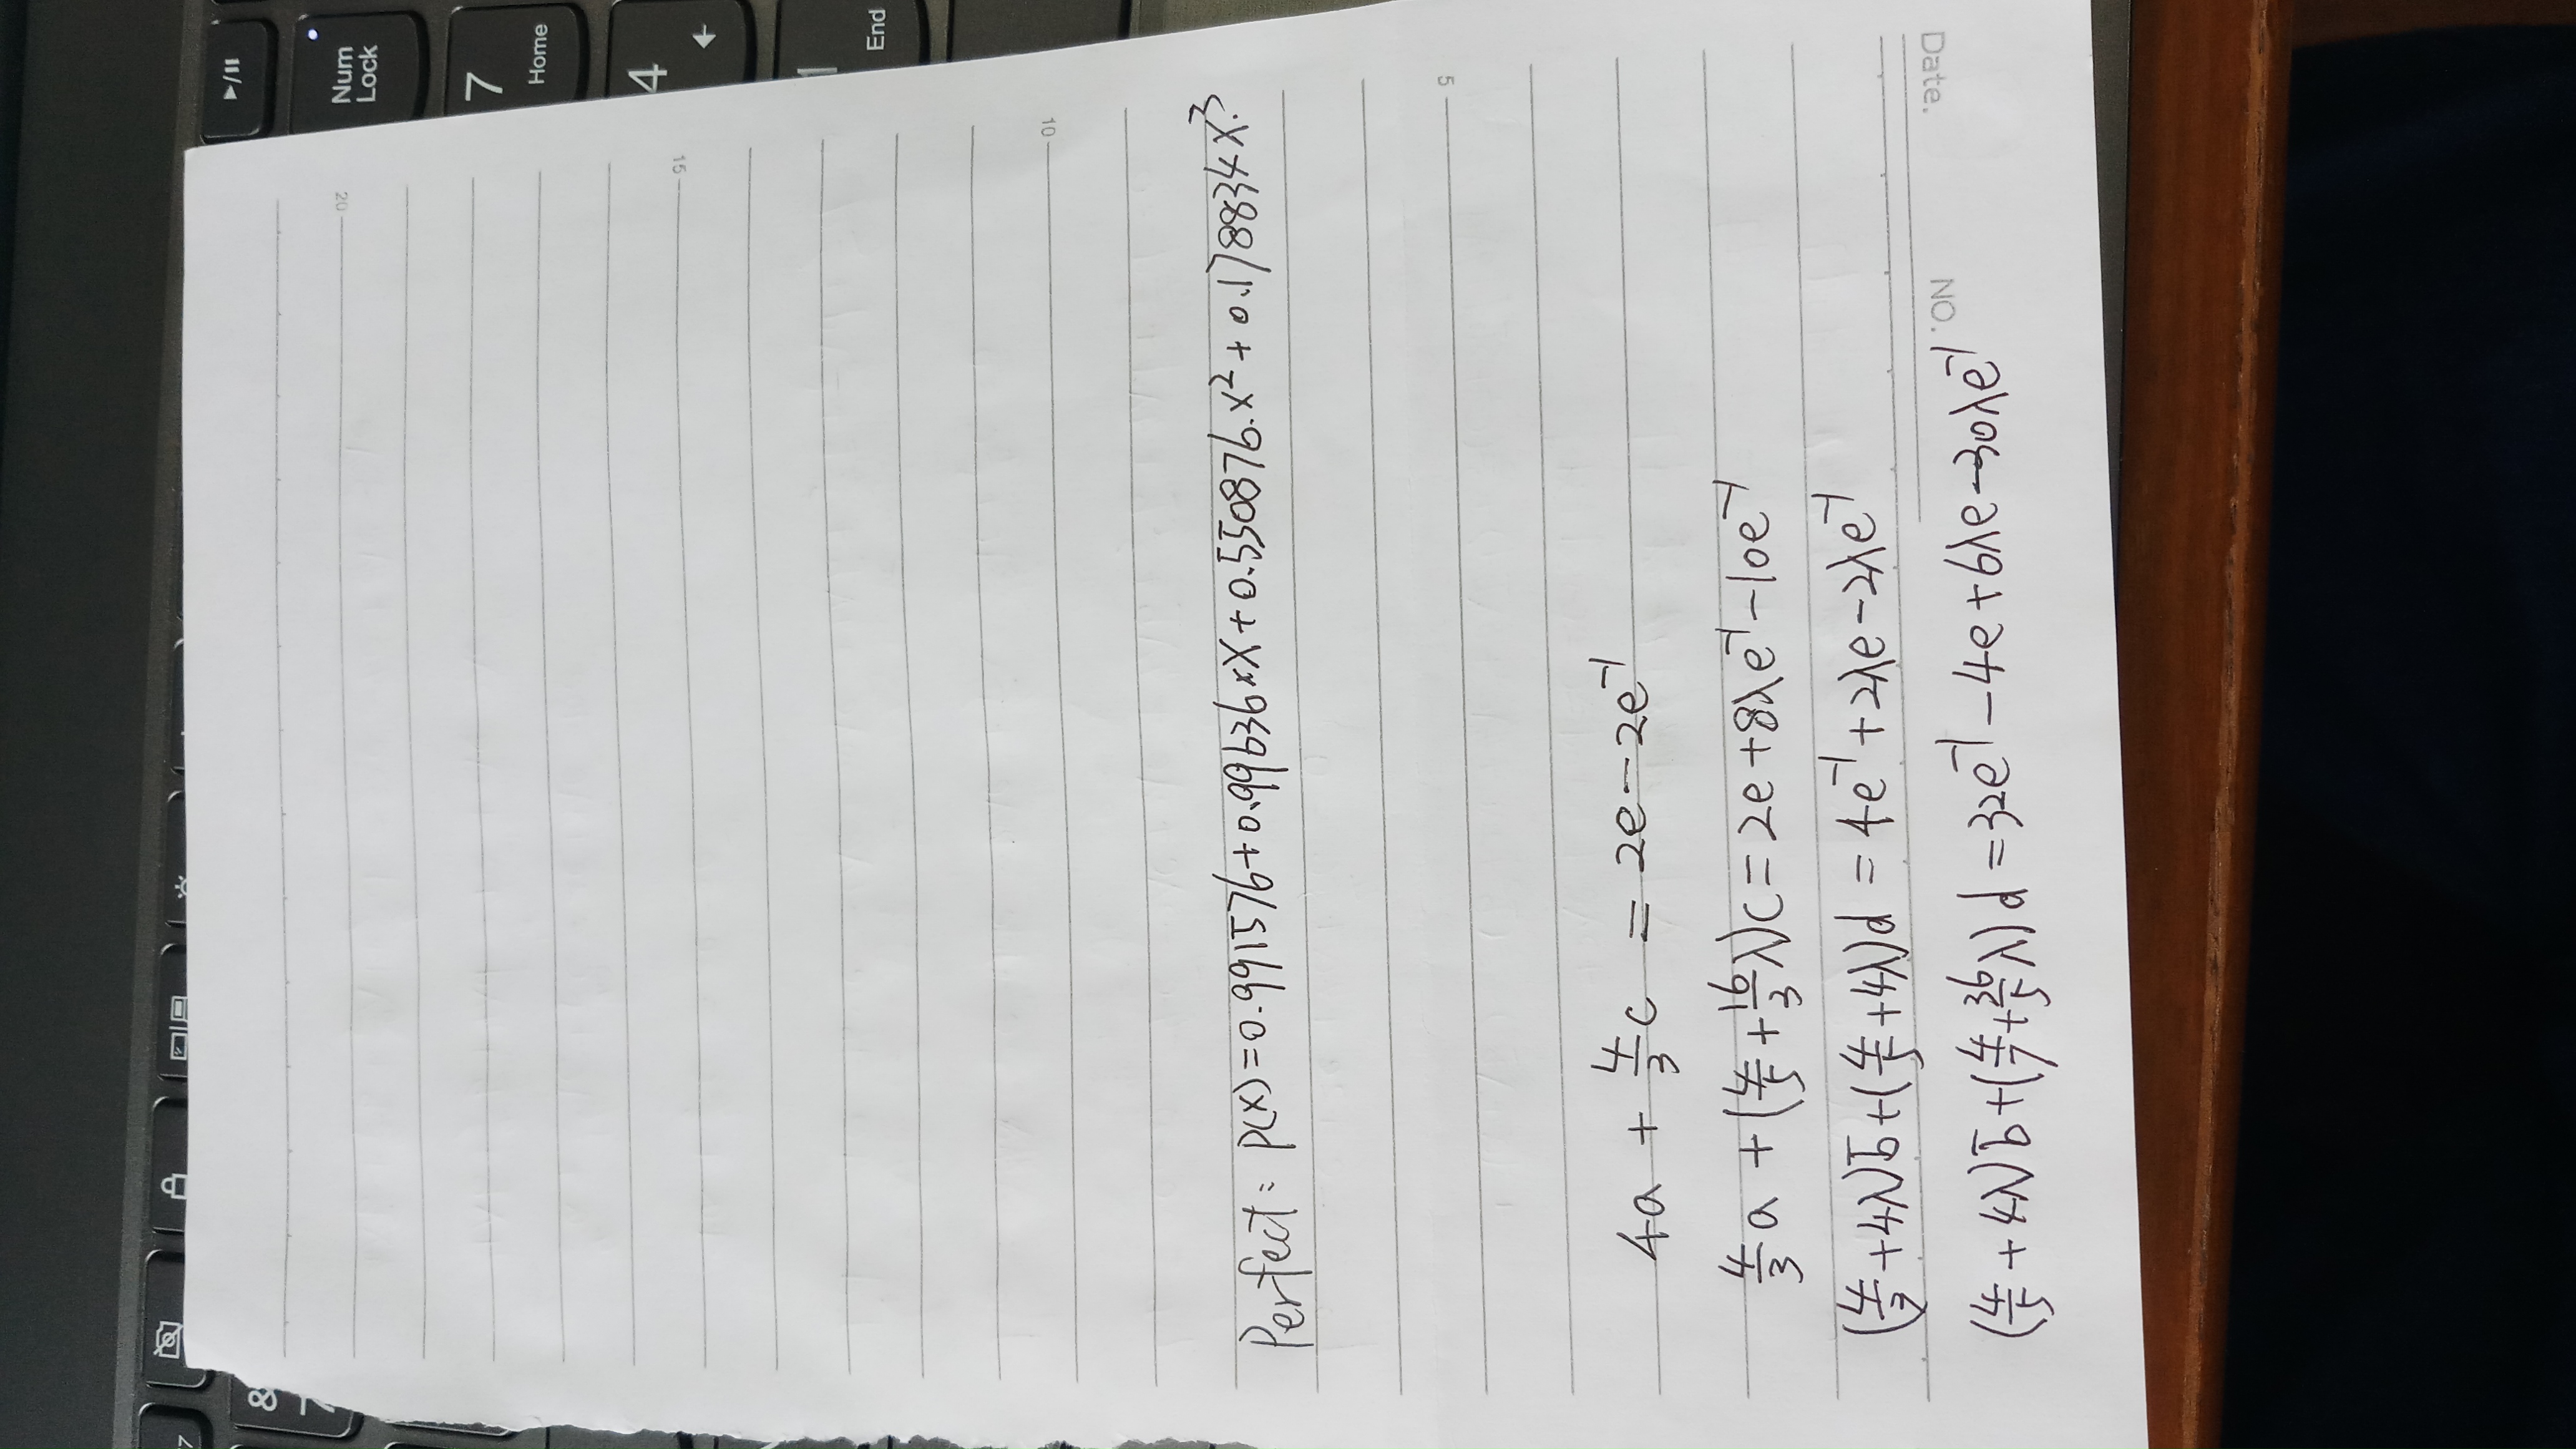 &
7
7
Num
Lock
7
Home
4
1
End
20
15
10
Perfect: P(x)=0.991576+0.99636*x+0.550876.x²+0.178834x.³
5
4a + 4/3 c = 2e-2e⁻¹
4/3 a + (4/5+16/3 λ)c = 2e+8λe⁻¹-10e⁻¹
(4/3+4λ)b+(4/5+4λ)d = 4e⁻¹+2λe-2λe⁻¹
NO.
Date.
(4/5+4λ)b+(4/7+36/5 λ)d = 32e⁻¹-4e+6λe-30λe⁻¹